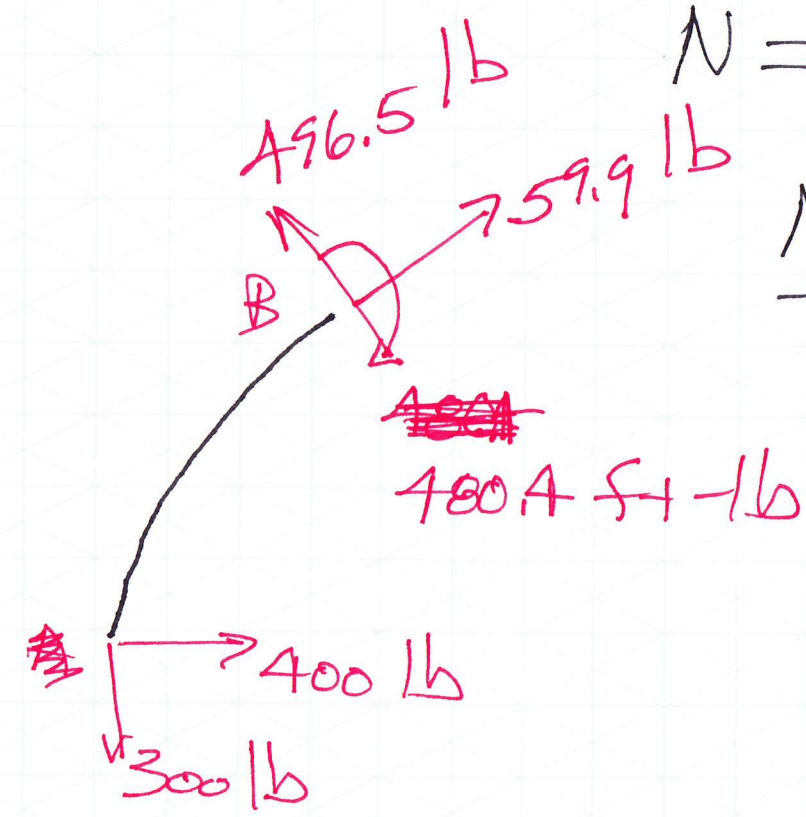 N =
496.5 lb
59.9 lb
B
480.4 ft-lb
400 lb
300 lb